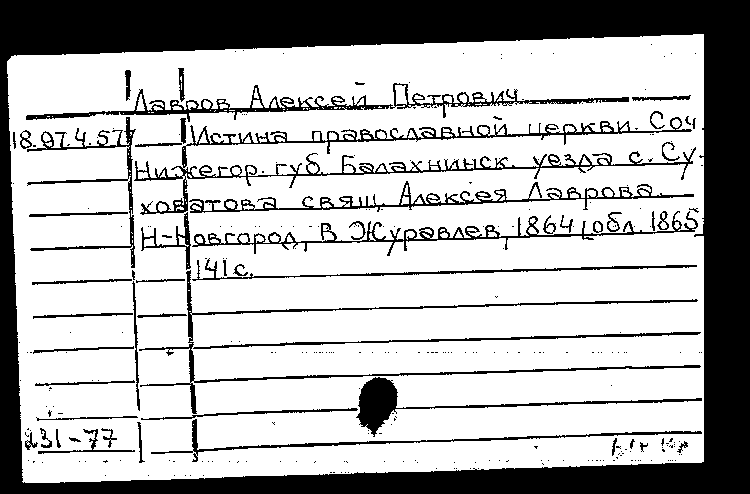 Лавров, Алексей Петрович
18.07.4.577 Истина православной церкви. Соч.
Нижегор. губ. Балахнинск. уезда с. Су-
ховатова свящ. Алексея Лаврова.
Н.-Новгород, В. Журавлев, 1864 [обл. 1865]
141 с.
231-77